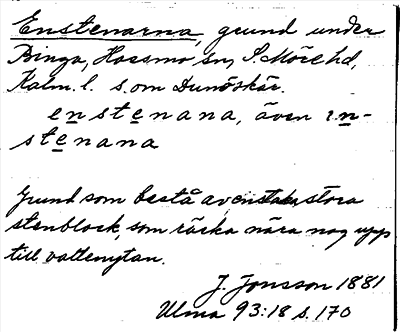 Enstenarna, grund under
Binga, Hossmo sn, S. Möre hd,
Kalm. l. s. om Dunöskär.
enstenana, även en-
stenana
Grund som bestå av enstaka stora
stenblock, som räcka nära nog upp
till vattenytan.
J. Jonsson 1881
Ulma 93:18 s. 170